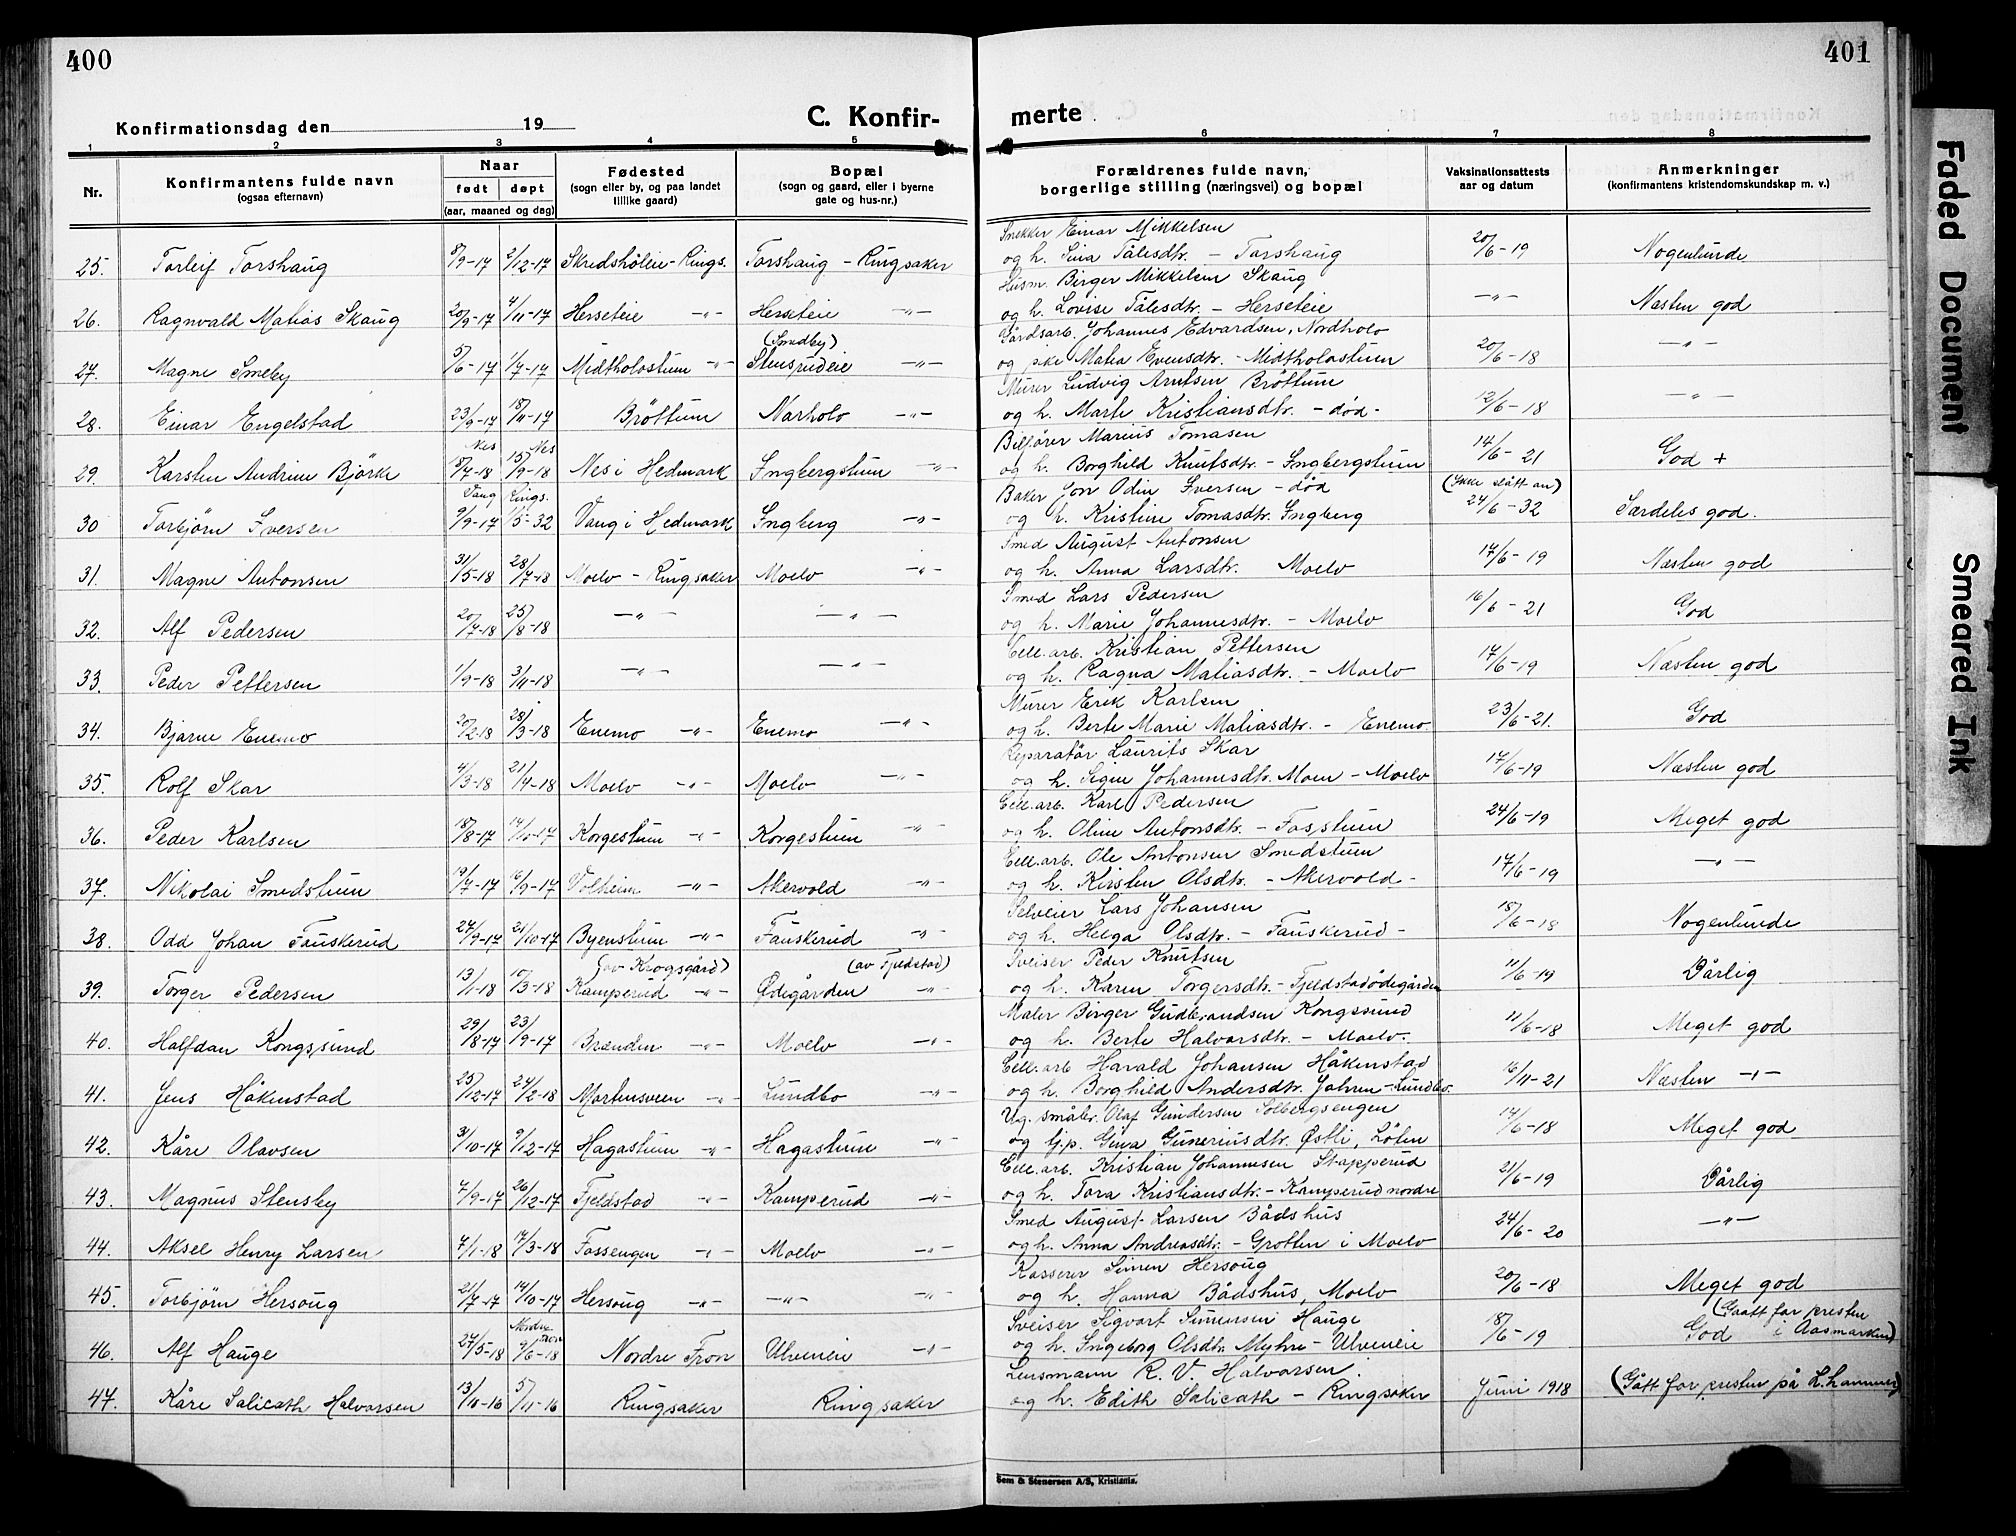 400
401
Konfirmationsdag den 19
C. Konfir-
merte
1 2 3 4 5 6 7 8
Nr.
Konfirmantens fulde navn
(ogsaa efternavn)
Naar
født døpt
(aar, maaned og dag)
Fødested
(sogn eller by, og paa landet
tillike gaard)
Bopæl
(sogn og gaard, eller i byerne
gate og hus-nr.)
Forældrenes fulde navn,
borgerlige stilling (næringsvei) og bopæl
Vaksinationsattests
aar og datum
Anmerkninger
(konfirmantens kristendomskundskap m. v.)
Snekker Einar Mikkelsen
25. Torleif Torshaug 8/9-17 2/12-17 Skredshöleie-Rings. Torshaug - Ringsaker og h. Lina Tålesdtr. - Torshaug 20/6-19 Nogenlunde
Husm. Birger Mikkelsen Skaug
26. Ragnvald Matias Skaug 20/9-17 4/11-17 Herseteie -"- Herseteie -"- og h. Lovise Tålesdtr. - Herseteie -"- Næsten god
(Smedby) Gårdsarb. Johannes Edvardsen, Nordholo
27. Magne Smeby 5/6-17 1/7-17 Midtholostuen -"- Stensrudeie -"- og pike Matea Evensdtr. - Midtholostuen 20/6-18 -"-
Murer Ludvig Arntsen Bröttum
28. Einar Engelstad 23/9-17 18/11-17 Bröttum Narholo -"- og h. Marte Kristiansdtr. - död - 12/6-18 -"-
Nes Nes Bilfører Marius Tomasen
29. Karsten Andrim Björke 8/4-18 15/9-18 Nes i Hedmark Ingbergstuen -"- og h. Borghild Knutsdtr. - Ingbergstuen 14/6-21 God +
Vang Rings. Baker Jon Odin Iversen - död (Ikke slått an)
30 Torbjörn Iversen 9/9-17 1/5-32 Vang i Hedmark Ingberg -"- og h. Kristine Tomasdtr. Ingberg 24/6-32 Særdeles god.
Smed August Antonsen
31. Magne Antonsen 31/5-18 28/7-18 Moelv - Ringsaker Moelv -"- og h. Anna Larsdtr. Moelv 17/6-19 Næsten god
Smed Lars Pedersen
32. Alf Pedersen 20/7-18 25/8-18 -"- -"- og h. Marie Johannesdtr. - Moelv 16/6-21 God
Cell.arb. Kristian Pettersen
33. Peder Pettersen 1/9-18 3/11-18 -"- -"- og h. Ragna Matiasdtr. - Moelv 17/6-19 Næsten god
Murer Erik Karlsen
34. Bjarne Enemo 20/2-18 28/3-18 Enemo -"- Enemo -"- og h. Berte Marie Matiasdtr. - Enemo 23/6-21. God
Reparatør Laurits Skar
35. Rolf Skar 4/3-18 21/4-18 Moelv -"- Moelv -"- og h. Signe Johannesdtr. Moen - Moelv 17/6-19 Næsten god
Cell.arb. Karl Pedersen
36. Peder Karlsen 18/8-17 14/10-17 Korgestuen -"- Korgestuen -"- og h. Oline Antonsdtr. - Fosstuen 24/6-19 Meget god
Cell.arb. Ole Antonsen Smedstuen
37. Nikolai Smedstuen 19/7-17 16/9-17 Volheim -"- Akervold -"- og h. Kirsten Olsdtr. - Akervold - 17/6-19 -"-
Selveier Lars Johansen
38. Odd Johan Fauskerud 27/9-17 21/10-17 Byenstuen -"- Fauskerud -"- og h. Helga Olsdtr. - Fauskerud - 18/6-18 Nogenlunde
(av Krogsgård) (av Fjeldstad) Sveiser Peder Knutsen
39. Torger Pedersen 13/1-18 10/3-18 Kamperud -"- Ødegården -"- og h. Karen Torgersdtr. - Fjeldstadödegården 11/6-19 Dårlig
Maler Birger Gudbrandsen Kongssund
40. Halfdan Kongssund 29/8-17 23/9-17 Brænden -"- Moelv -"- og h. Berte Halvorsdtr. - Moelv. 11/6-18 Meget god
Cell.arb Harald Johansen Håkenstad
41. Jens Håkenstad 25/12-17 24/2-18 Mortensveen -"- Lundbo -"- og h. Borghild Andersdtr. Jahren - Lundbo. 16/11-21 Næsten -"-
Ug. småbr. Olaf Gundersen Solbergsengen
42. Kåre Olavsen 31/10-17 9/12-17 Hagastuen -"- Hagastuen -"- og tjp. Gina Guneriusdtr. Østli, Löten 14/6-18 Meget god
Cell.arb. Kristian Johannesen Stapperud
43. Magnus Stensby 7/9-17 26/12-17 Fjeldstad -"- Kamperud -"- og h. Tora Kristiansdtr. - Kamperud nordre 21/6-19 Dårlig
Smed August Larsen Bådshus
44. Aksel Henry Larsen 7/1-18 17/3-18 Fossengen -"- Moelv -"- og h. Anna Andreasdtr. - Grotten i Moelv 24/6-20 -"-
Kasserer Simen Hersoug
45. Torbjörn Hersoug 21/7-17 14/10-17 Hersoug -"- -"- -"- og h. Hanna Bådshus, Moelv 20/6-18 Meget god
Nordre Fron Sveiser Sigvart Simensen Hauge (Gaatt for presten
46. Alf Hauge 27/5-18 9/6-18 Nordre Fron Ulveneie -"- og h. Ingeborg Olsdtr. Myhre - Ulveneie 18/6-19 God i Aasmarken)
Lensmann R. V. Halvorsen
47. Kåre Salicath Halvorsen 13/10-16 5/11-16 Ringsaker Ringsaker og h. Edith Salicath - Ringsaker Juni 1918 (Gått for presten på L.hammer)
Sem & Stenersen A/S, Kristiania.
Faded Document
Smeared Ink